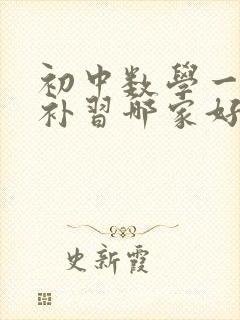 初中数學一
补習哪家好
史新霞